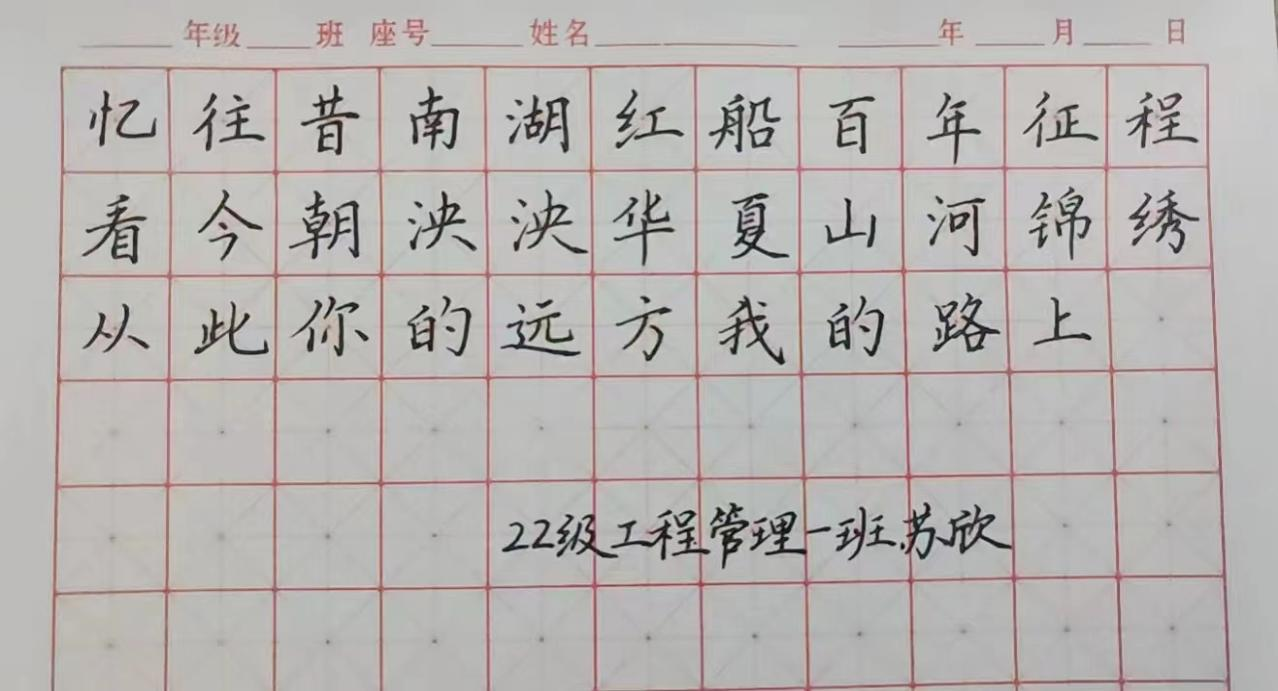 年级 班 座号 姓名 年 月 日
忆往昔南湖红船百年征程
看今朝泱泱华夏山河锦绣
从此你的远方我的路上
22级工程管理一班苏欣